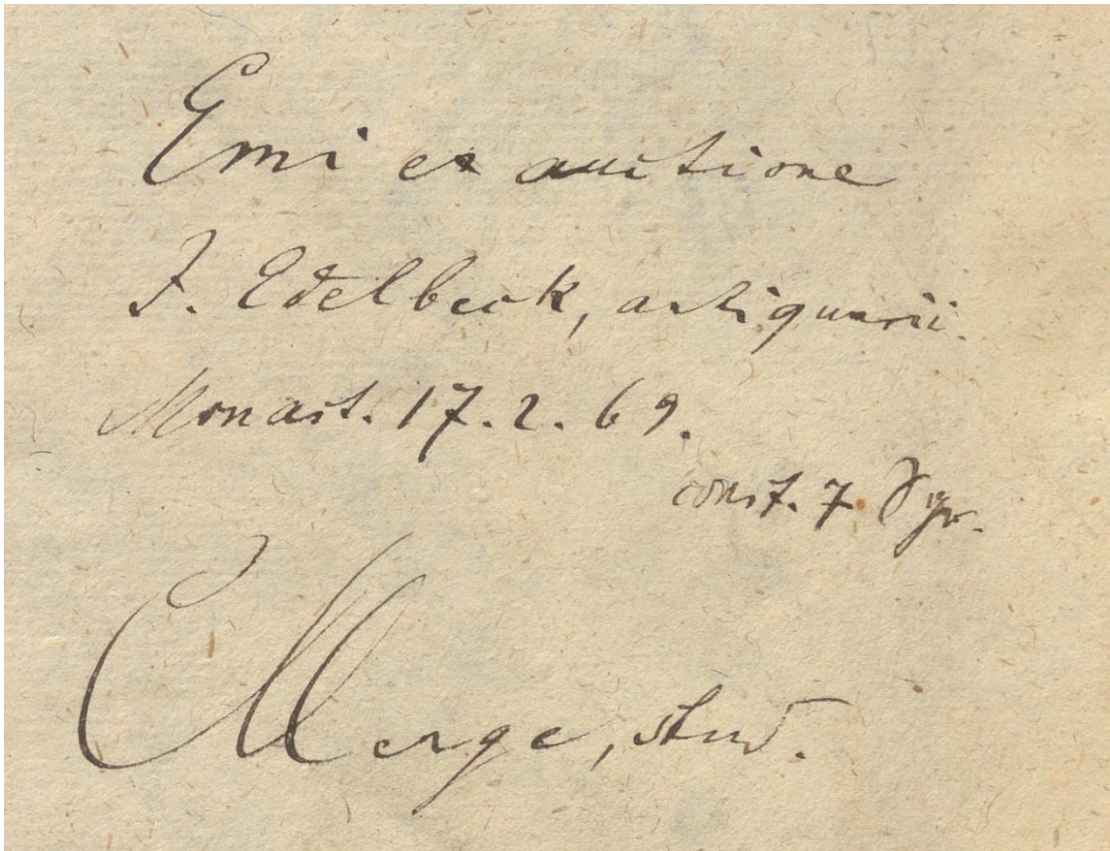 Emi ex auctione
J. Edelbeck, antiquarii.
Monast. 17.2.69.
const. 7 Sgr.
CMerge, stud.